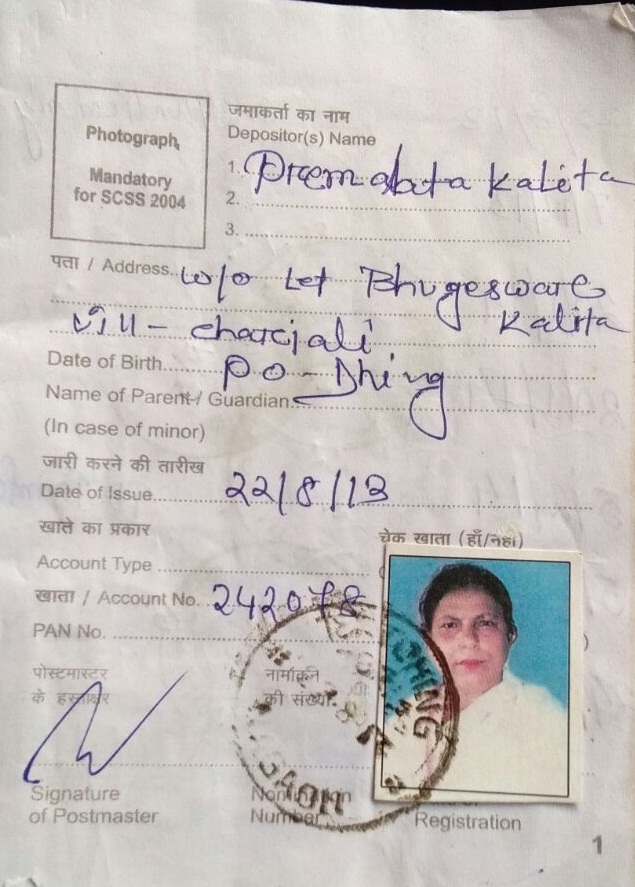 Photograph
Mandatory
for SCSS 2004
जमाकर्ता का नाम
Depositor(s) Name
1. Premalata Kalita
2.
3.
पता / Address.. W/o Let Bhugesware
Kalita
Vill - Charjali
Date of Birth..... P.O - Dhing
Name of Parent / Guardian
(In case of minor)
जारी करने की तारीख
Date of Issue..... 22/8/13
खाते का प्रकार
चेक खाता (हाँ/नहीं)
Account Type
खाता / Account No. 242078
PAN No.
पोस्टमास्टर
के हस्ताक्षर
नामांकन
की संख्या
DHING
Signature
of Postmaster
Nomination
Number
Registration
1